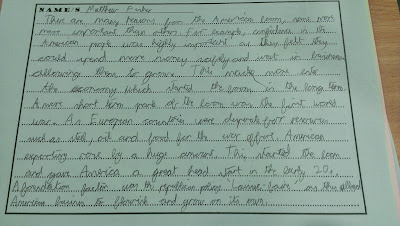 NAME/S Matthew
There are many reasons from the American boom, some more
more important than others. For example, confidence in the
American people was highly important as they felt they
could spend more money safely and invest in businesses
allowing them to grow. This made more into
the economy which started the boom in the long term
A more short term part of the boom was the first world
war. As European countries were desperate for resources
such as steel, oil and food for the war effort, American
exporting rose by a huge amount. This started the boom
and gave America a great head start in the early 20s.
A foundation factor was the republican policy Laissez faire as this allowed
American business to flourish and grow on its own.